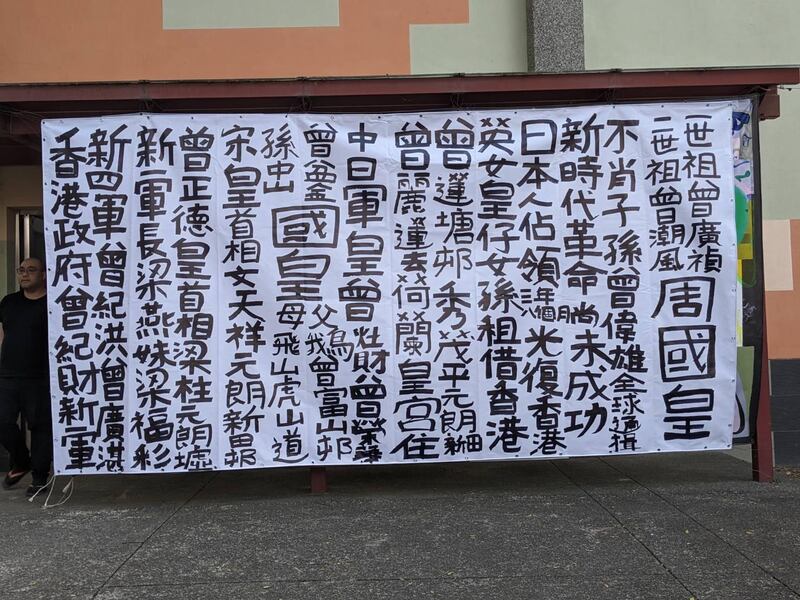 一世祖曾廣禎
二世祖曾潮風
周國皇
不肖子孫曾偉雄全球通緝
新時代革命尚未成功
日本人佔領三年八個月光復香港
英女皇仔女孫祖借香港
曾蓮塘邨秀茂平元朗新田
曾麗蓮去荷蘭皇宮住
中日軍皇曾財曾榮華
曾
孫
國皇
父
曾富山邨
母飛山虎山道
宋皇首相文天祥元朗新界
曾正德皇首相梁柱元朗墟
新一軍長梁燕妹梁福彩
新四軍曾紀洪曾廣洪
香港政府曾紀財新一軍